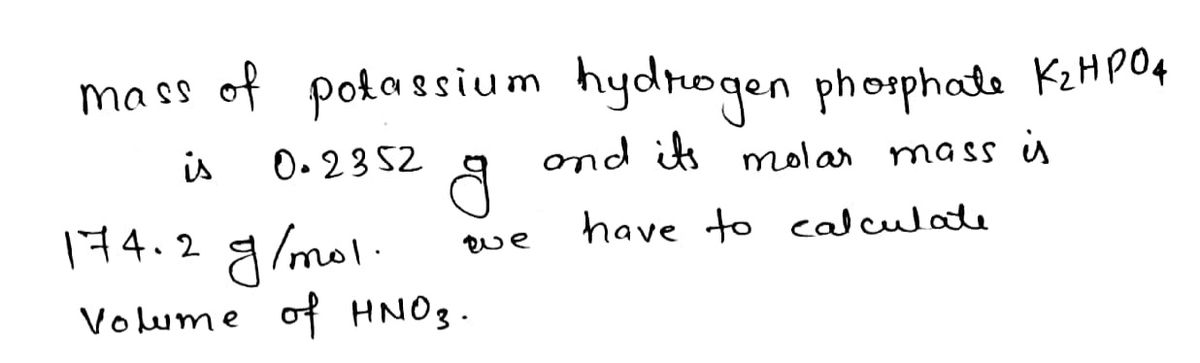 mass of potassium hydrogen phosphate K₂HPO₄
is 0.2352 g and its molar mass is
174.2 g/mol. we have to calculate
Volume of HNO₃.